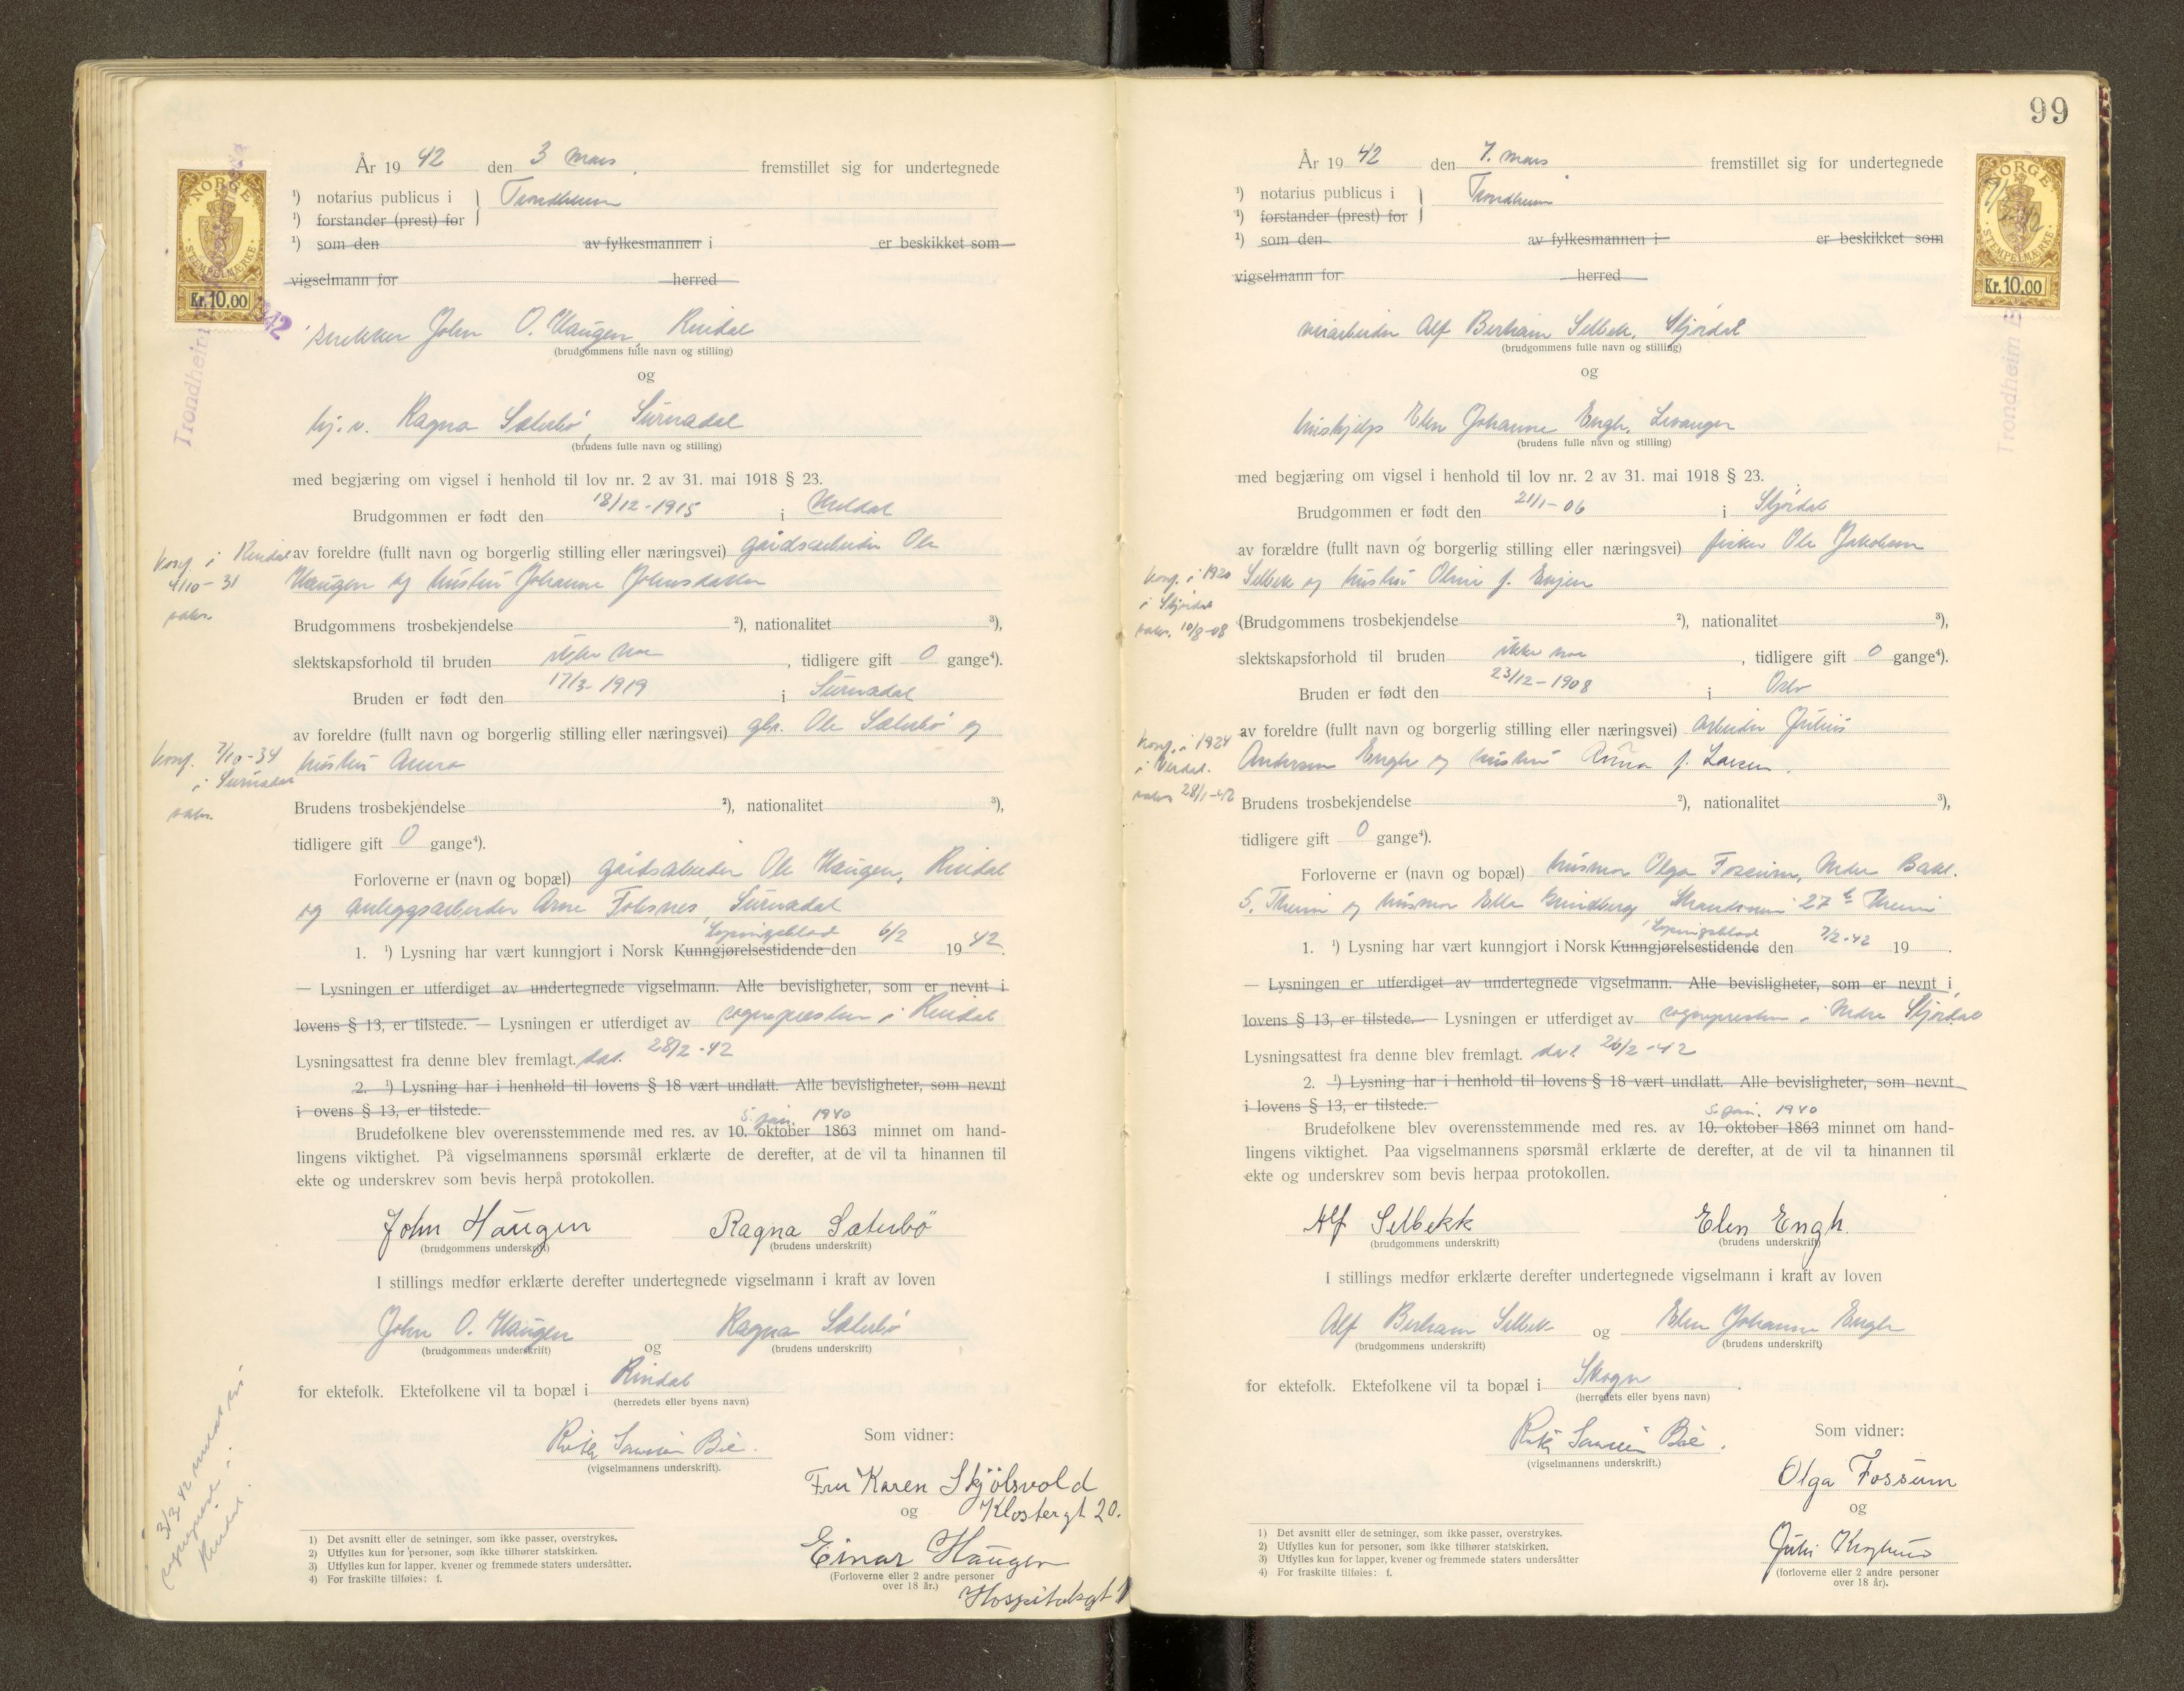 År 19 42 den 3 mars fremstillet sig for undertegnede
¹) notarius publicus i } Trondheim
¹) forstander (prest) for
¹) som den av fylkesmannen i er beskikket som
vigselmann for herred
NORGE
STEMPELMÆRKE
Kr. 10.00
Trondheim
John O. Haugen, Rindal
(brudgommens fulle navn og stilling)
og
Ragna Sæterbö, Surnadal
(brudens fulle navn og stilling)
med begjæring om vigsel i henhold til lov nr. 2 av 31. mai 1918 § 23.
Brudgommen er født den 18/12-1915 i Meldal
av foreldre (fullt navn og borgerlig stilling eller næringsvei) gårdsarbeider Ole
Haugen og hustru Johanne Johnsdatter
konf. i Rindal
4/10-31
vaks.
Brudgommens trosbekjendelse ²), nationalitet ³),
slektskapsforhold til bruden ikke noe, tidligere gift 0 gange⁴).
Bruden er født den 17/3-1919 i Surnadal
av foreldre (fullt navn og borgerlig stilling eller næringsvei) gbr. Ole Sæterbö og
hustru Anna
konf. 7/10-34
i Surnadal
vaks.
Brudens trosbekjendelse ²), nationalitet ³),
tidligere gift 0 gange⁴).
Forloverne er (navn og bopæl) gårdsarbeider Ole Haugen, Rindal
og anleggsarbeider Arne Folesnes, Surnadal
1. ¹) Lysning har vært kunngjort i Norsk Kunngjørelsestidende Lysingsblad den 6/2 19 42.
— Lysningen er utferdiget av undertegnede vigselmann. Alle bevisligheter, som er nevnt i
lovens § 13, er tilstede. — Lysningen er utferdiget av sognepresten i Rindal
Lysningsattest fra denne blev fremlagt. dat. 28/2-42
2. ¹) Lysning har i henhold til lovens § 18 vært undlatt. Alle bevisligheter, som nevnt
i ovens § 13, er tilstede.
5. jan. 1940
Brudefolkene blev overensstemmende med res. av 10. oktober 1863 minnet om hand-
lingens viktighet. På vigselmannens spørsmål erklærte de derefter, at de vil ta hinannen til
ekte og underskrev som bevis herpå protokollen.
John Haugen Ragna Sæterbö
(brudgommens underskrift) (brudens underskrift)
I stillings medfør erklærte derefter undertegnede vigselmann i kraft av loven
John O. Haugen og Ragna Sæterbö
(brudgommens underskrift) (brudens underskrift)
for ektefolk. Ektefolkene vil ta bopæl i Rindal
(herredets eller byens navn)
Bie.
(vigselmannens underskrift).
Som vidner:
Fru Karen Skjölsvold
og Klostergt 20.
Einar Haugen
(Forloverne eller 2 andre personer
over 18 år.)
Hospitalsgt 1
3/3 42 meldt til
sogneprest i
Rindal.
1) Det avsnitt eller de setninger, som ikke passer, overstrykes.
2) Utfylles kun for personer, som ikke tilhører statskirken.
3) Utfylles kun for lapper, kvener og fremmede staters undersåtter.
4) For fraskilte tilføies: f.
99
År 19 42 den 7. mars fremstillet sig for undertegnede
¹) notarius publicus i } Trondheim
¹) forstander (prest) for
¹) som den av fylkesmannen i er beskikket som
vigselmann for herred
NORGE
STEMPELMÆRKE
Kr. 10.00
Trondheim
Alf Bertram Selbek, Skjördal
(brudgommens fulle navn og stilling)
og
hushjelp Elen Johanne Engh, Levanger
(brudens fulle navn og stilling)
med begjæring om vigsel i henhold til lov nr. 2 av 31. mai 1918 § 23.
Brudgommen er født den 21/1-06 i Stjördal
av forældre (fullt navn og borgerlig stilling eller næringsvei) fisker Ole Jakobsen
Selbek og hustru Oline f. Enjen
konf. i 1920
i Stjördal
vaks. 10/8-08
(Brudgommens trosbekjendelse ²), nationalitet ³),
slektskapsforhold til bruden ikke noe, tidligere gift 0 gange⁴).
Bruden er født den 23/12-1908 i Oslo
av foreldre (fullt navn og borgerlig stilling eller næringsvei) arbeider Julius
Andersen Engh og hustru Anna f. Larsen.
konf. i 1924
i Verdal.
vaks. 28/1-42
Brudens trosbekjendelse ²), nationalitet ³),
tidligere gift 0 gange⁴).
Forloverne er (navn og bopæl) husmor Olga Fossum, Nedre Bakl.
5, Theim og husmor Ella Grindberg Strandveien 27 b Theim
1. ¹) Lysning har vært kunngjort i Norsk Kunngjørelsestidende Lysingsblad den 7/2-42 19 .
— Lysningen er utferdiget av undertegnede vigselmann. Alle bevisligheter, som er nevnt i
lovens § 13, er tilstede. — Lysningen er utferdiget av sognepresten i Nedre Stjördal
Lysningsattest fra denne blev fremlagt. dat 26/2-42
2. ¹) Lysning har i henhold til lovens § 18 vært undlatt. Alle bevisligheter, som nevnt
i lovens § 13, er tilstede.
5. jan. 1940
Brudefolkene blev overensstemmende med res. av 10. oktober 1863 minnet om hand-
lingens viktighet. Paa vigselmannens spørsmål erklærte de derefter, at de vil ta hinannen til
ekte og underskrev som bevis herpaa protokollen.
Alf Selbekk Elen Engh.
(brudgommens underskrift) (brudens underskrift)
I stillings medfør erklærte derefter undertegnede vigselmann i kraft av loven
Alf Bertram Selbek og Elen Johanne Engh
(brudgommens underskrift) (brudens underskrift)
for ektefolk. Ektefolkene vil ta bopæl i Skogn
(herredets eller byens navn)
Bie.
(vigselmannens underskrift.)
Som vidner:
Olga Fossum
og
(forloverne eller 2 andre personer
over 18 år).
1) Det avsnitt eller de setninger, som ikke passer, overstrykes.
2) Utfylles kun for personer, som ikke tilhører statskirken.
3) Utfylles kun for lapper, kvener og fremmede staters undersåtter
4) For fraskilte tilføies: f.